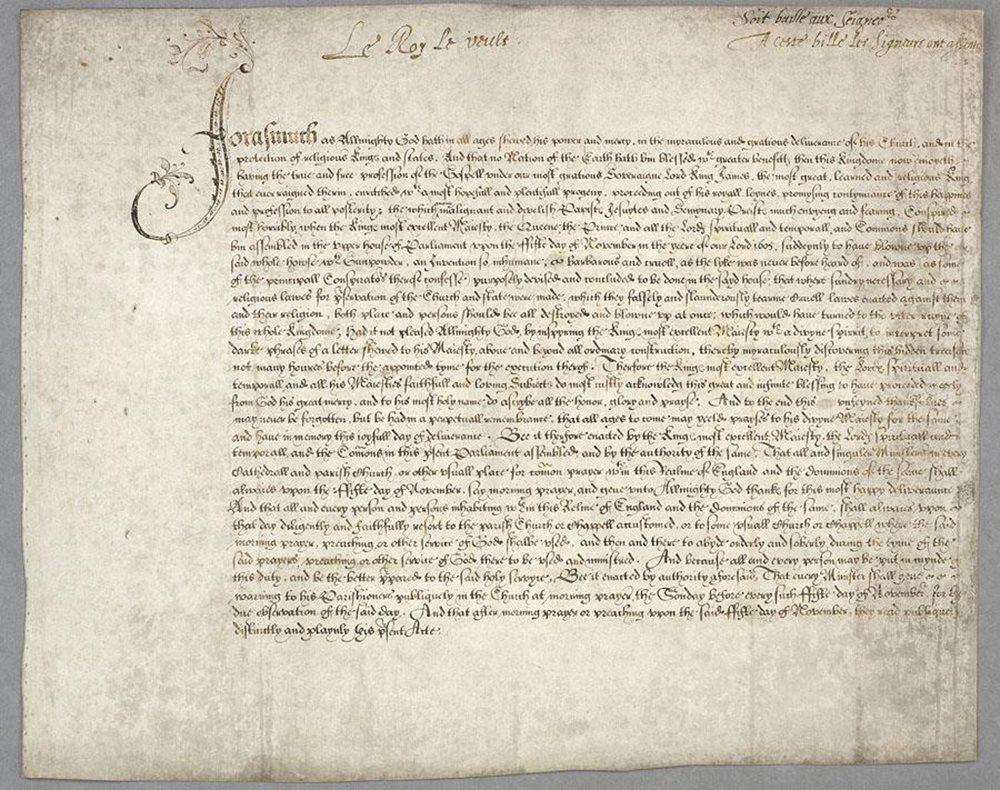 Soit baille aux Seigneurs
Le Roy le veult
A ceste bille les Signeurs ont assentus
Forasmuch as Allmighty God hath in all ages shewed his power and mercy, in the myraculous and gratious deliverance of his Church, and in the
protection of religious Kings and states, And that no Nation of the Earth hath bin blessed wth greater benefitts then this Kingdome now enioyeth
having the true and free profession of the Gospell under our most gratious Soveraigne Lord King James, the most great, learned and religious King
that ever raigned therin, enriched wth a most hopefull and plentifull progeny, proceeding out of his royall loynes, promysing contynuance of this happines
and profession to all posterity; the which malignant and divelish Papists Jesuytes and Semynary Preists much envyeng and fearing, Conspired
most horribly when the Kings most excellent Maiesty, the Queene the Prince and all the Lords spirituall and temporall, and Commons should have
bin assembled in the upper house of Parliament upon the ffifte day of November in the yeere of our Lord 1605, suddeynly to have blowne up the
said whole howse wth Gunpowder, an Invention so inhumane, barbarous and cruell, as the lyke was never before heard of, and was as some
of the principall Conspirators therof confesse purposely devised and concluded to be done in the sayd house, that where sundry necessary and
religious lawes for pservation of the Church and state were made, which they falsely and slaunderously tearme Cruell lawes enacted against them
and their religion, both place and persons should bee all destroyed and blowne up at once, which would have turned to the utter ruyne of
this whole Kingdome, Had it not pleased Allmighty God, by inspyring the Kings most excellent Maiesty wth a divyne spirit, to interpret some
darke phrases of a letter shewed to his Maiesty, above and beyond all ordinary construction, thereby myraculously discovering this hidden treason
not many howres before the appointed tyme for the execution therof. Therfore the Kings most excellent Maiesty, the Lords spirituall and
temporall, and all his Maiesties faithfull and loving Subiects do most iustly acknowledg this great and infinite blessing to have proceeded meerly
from God his great mercy, and to his most holy name do ascrybe all the honor, glory and prayse. And to the end this unfeyned thankfulnes
may never be forgotten, but be had in a perpetuall remembrance, that all ages to come may yeeld prayses to his divyne Maiesty for the same
and have in memory this ioyfull day of deliverance. Bee it therfore enacted by the Kings most excellent Maiesty, the Lords spirituall and
temporall, and the Comons in this psent Parliament assembled, and by the authority of the same, That all and singuler Ministers in every
Cathedrall and parish Church, or other usuall place for comon prayer wthin this Realme of England and the dominions of the same shall
alwaies upon the ffifte day of November, say morning prayer, and geve unto Allmighty God thanks for this most happy deliveraunce
And that all and every person and persons inhabiting wthin this Relme of England and the dominions of the same, shall alwaies upon
that day diligently and faithfully resort to the parish Church or Chappell accustomed, or to some usuall Church or Chappell where the said
morning prayer, preaching or other service of God shalbe used, and then and there to abyde orderly and soberly during the tyme of the
said prayers preaching or other service of God there to be used and ministred. And because all and every person may be put in mynde of
this duty, and be the better ppared to the said holy servyce, Bee it enacted by authority aforesaid, That every Minister shall geve
warning to his Parishioners publiquely in the Church at morning prayer the Sonday before every such ffifte day of November for the
due observation of the said day. And that after morning prayer or preaching upon the said ffifte day of November, they read publiquely
distinctly and playnly this psent Acte.